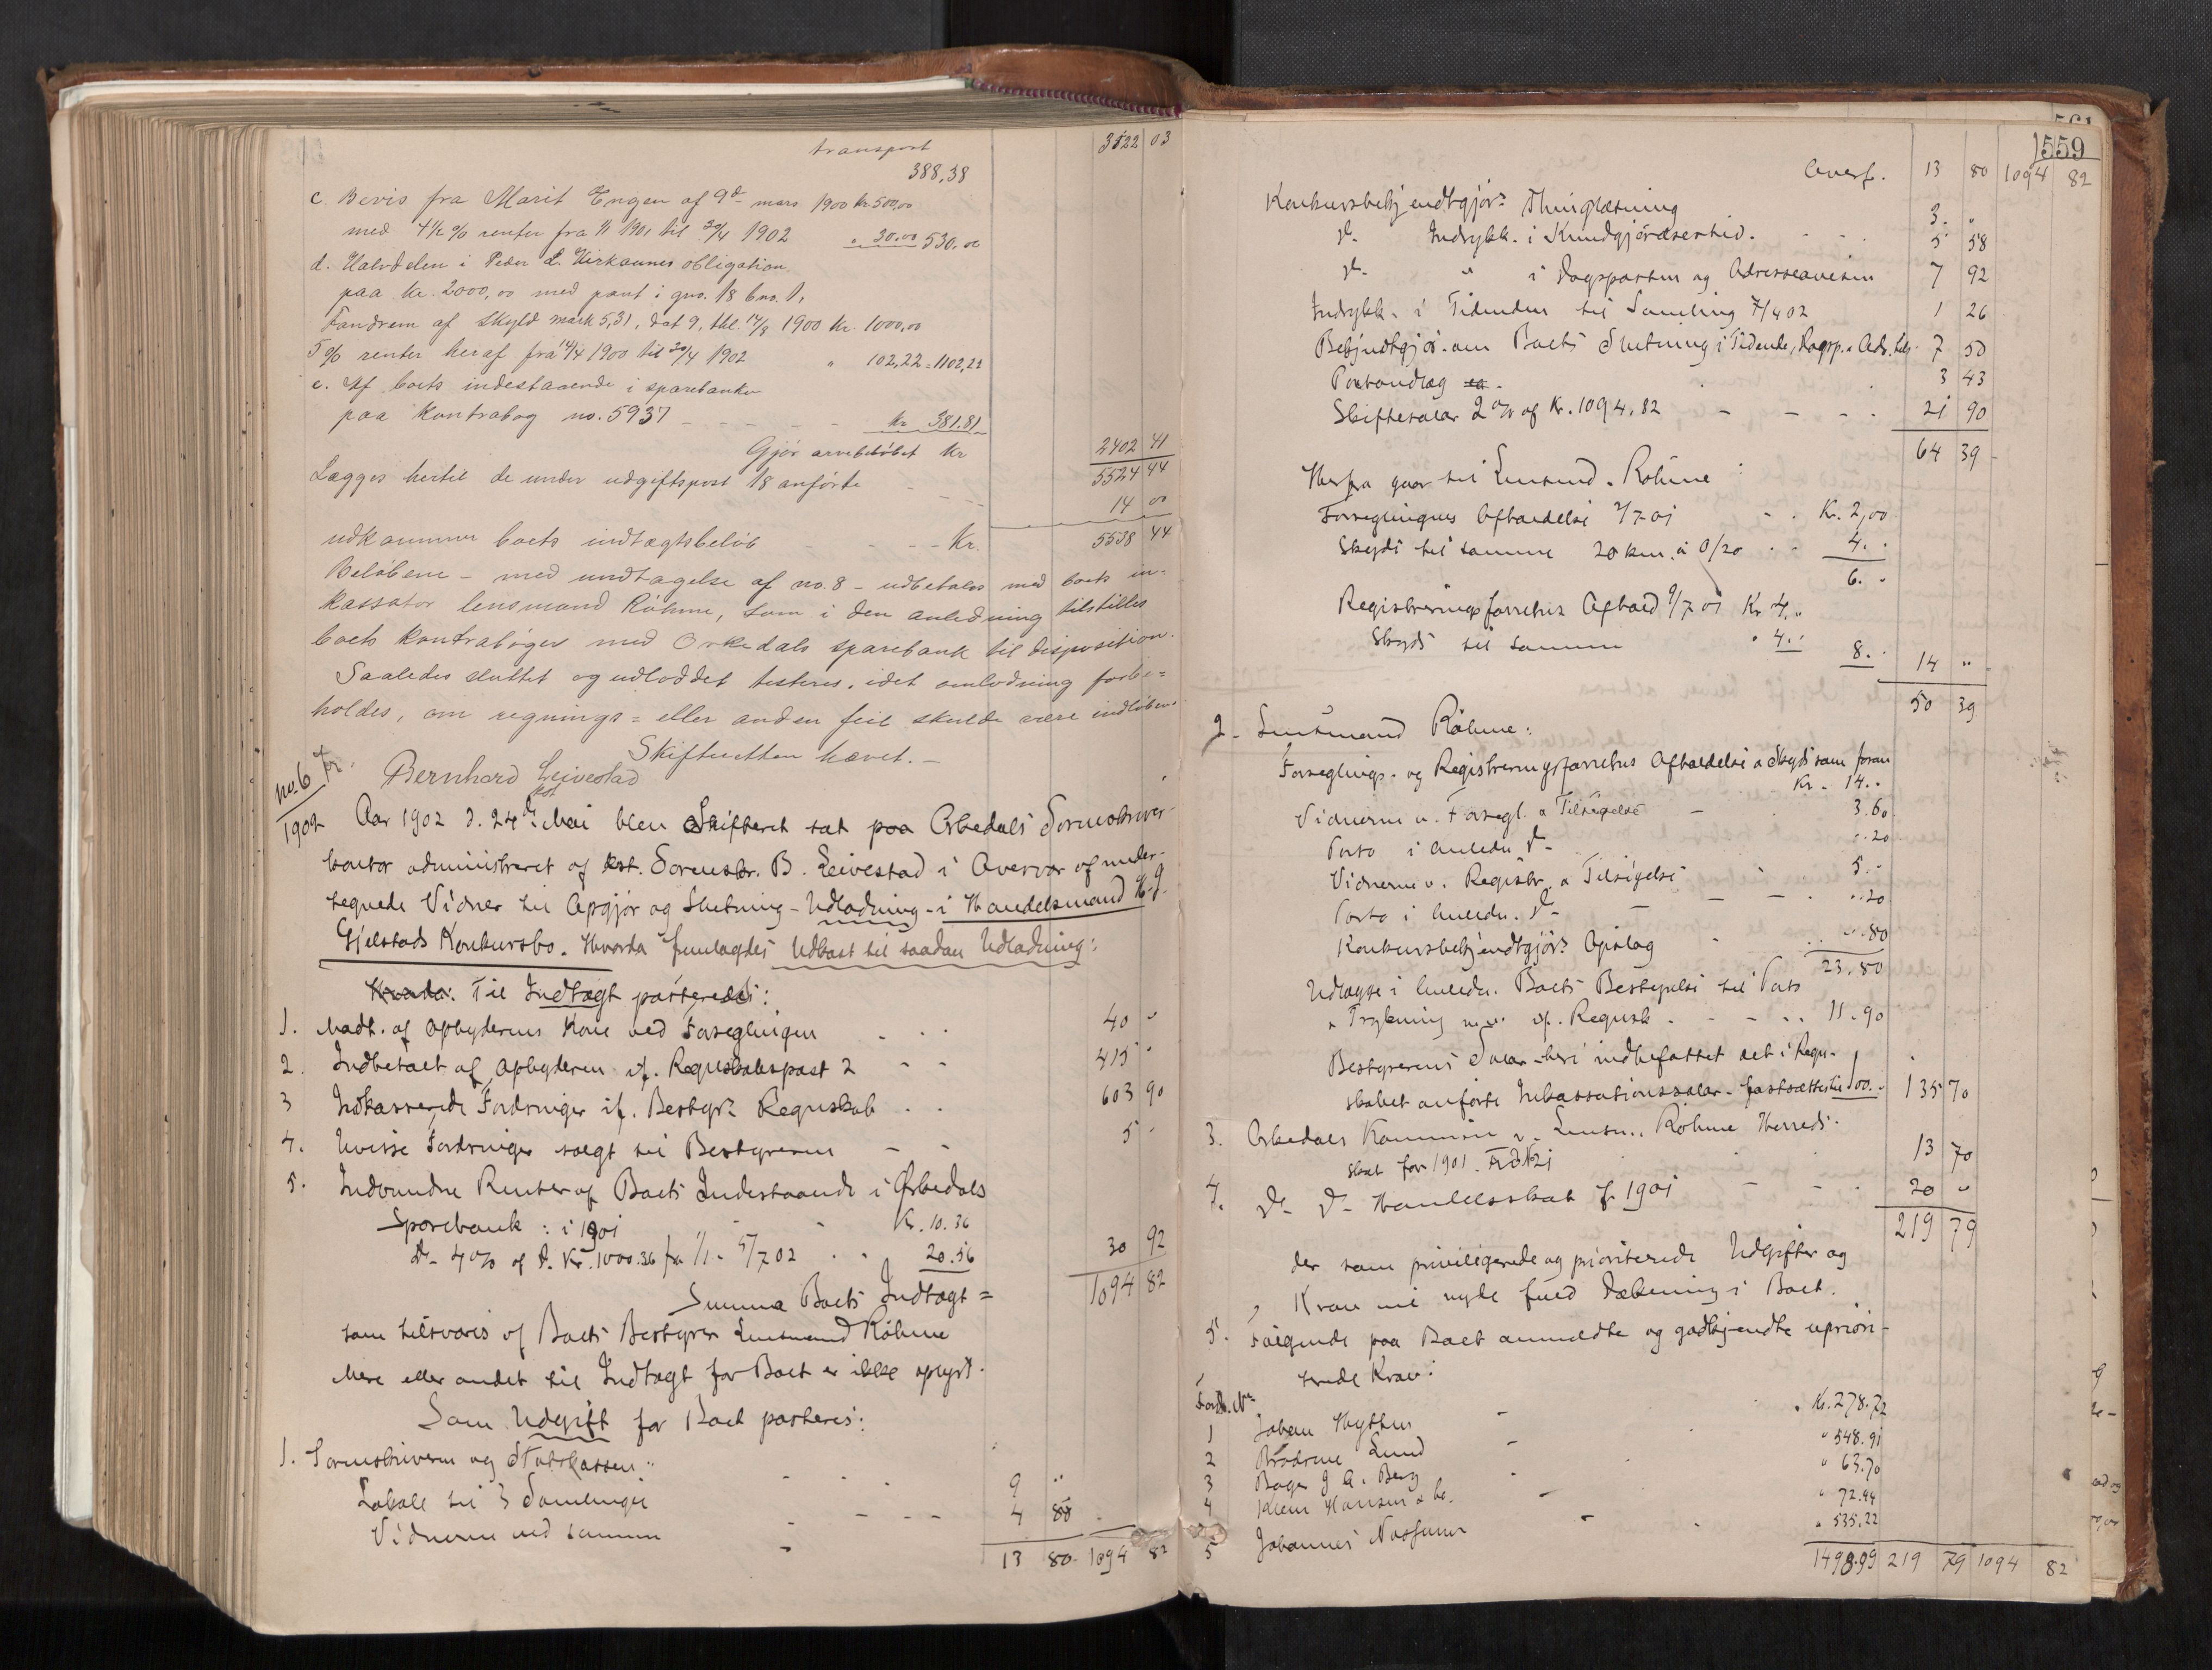 transport 3122 03
388,38
c. Bevis fra Marit Engen af 9de mars 1900 kr 500,00
med 4½ % renter fra 1/1 1901 til 30/4 1902 " 30,00 530,00
d. Halvdelen i Peder L. Kirkaunes obligation
paa kr. 2000,00 med pant i gno. 18 bno. 1,
Fandrem af skyld mark 5,31, dat 9, thl. 14/8 1900 kr. 1000,00
5 % renter heraf fra 14/4 1900 til 30/4 1902 " 102,22 = 1102,22
e. Af boets indestaaende i sparebanken
paa kontrabog no. 5937 - - - - - kr 381.81
Gjør arvebeløbet kr 2402 41
5524 44
Lægges hertil de under udgiftspost 18 anførte - - 14 00
udkommer boets indtægtsbeløb - - - - Kr. 5538 44
Beløbene - med undtagelse af no. 8 - udbetales med boets in-
kassator lensmand Røhme, som i den anledning tilstilles
boets kontrabøger med Orkedals sparebank til disposition.
Saaledes sluttet og udloddet testeres, idet omlodning forbe=
holdes, om regnings= eller anden feil skulde være indløben.
Skifteretten hævet. -
Bernhard Leivestad
kst
no. 6
1902
Aar 1902 d. 24de Mai blev Skifteret sat paa Orkedals Sorenskriver-
kontor administreret af kst. Sorenskr. B. Leivestad i Overvær af under-
tegnede Vidner til Opgjør og Slutning - Udlodning - i Handelsmand H. J.
Gjelstads Konkursbo. Hvorda fremlagdes Udkast til saadan Udlodning:
Hvorda: Til Indtægt posteredes:
1. Modt. af Opbyderens Kone ved Forseglingen - - 40 "
2. Indbetalt af Opbyderen if. Regnskabspost 2 - - 415 "
3 Indkasserede Fordringer if. Bestyr's Regnskab - - 603 90
4. Uvisse Fordringer solgt til Bestyreren - - 5 -
5. Indvundne Renter af Boets Indestaaende i Orkedals
Sparebank: i 1901 - Kr. 10.36
do 4 % af d. Kr. 1000.36 fra 1/1 - 5/7 02 - - 20.56 30 92
Summa Boets Indtægt = 1094 82
som tilsvares af Boets Bestyrer Lensmand Røhme
Mere eller andet til Indtægt for Boet er ikke oplyst.
Som Udgift for Boet posteres:
1. Sorenskriveren og Statskassen:
Lokale til 3 Samlinger - - - 9 "
Vidnerne ved samme - - - - 4 80
13 80 1094 82
559
Overf. 13 80 1094 82
Konkursbekjendtgjør's Thinglæsning 3. "
do Indrykk. i Kundgjørelsestid. - - - 5 58
do " i Dagsposten og Adresseavisen 7 92
Indrykk. i Tidenden til Samling 7/4 02 1 26
Bekjendtgjør. om Boets Slutning i Tidende, Dagsp. & Adr. 7 50
Portoudlæg - 3 43
Skiftesalar 2 % af Kr. 1094.82 - - - - 21 90
64 39
Herfra gaar til Lensmd. Røhme:
Forseglingens Afholdelse 2/7 01 - - Kr. 2,00
Skyds til samme 20 km. à 0/20 - - 4. "
6. "
Registreringsforretns Afhold 9/7 01 Kr 4. "
Skyds til samme " 4. " 8. " 14 "
50 39
2 - Lensmand Røhme:
Forseglings- og Registreringsforretns Afholdelse & Skyds som foran
Kr. 14. "
Vidnerne v. Forsegl. & Tilsigelse - 3.60
Porto i Anledn do " .20
Vidnerne v. Registr. & Tilsigelse 5. -
Porto i Anledn. do - - - - " .20
Konkursbekjendtgjør's Opslag - " .80
23.80
Udlægge i Anledn. Boets Bestyrelse til Porto
& Trykning m.v. if. Regnsk. - - - - 11.90
Bestyrerens Salar - heri indbefattet det i Regn-
skabet anførte Inkassationssalar - fastsættes til 100. - 135 70
3. Orkedals Kommune v. Lensm. Røhme Herreds-
skat for 1901. 13 70
4. do do Handelsskat f. 1901 - - - 20 "
219 79
der som priviligerede og prioriterede Udgifter og
Krav vil nyde fuld Dækning i Boet.
5. Følgende paa Boet anmeldte og godkjendte upriori-
terede Krav:
Ford. No
1 Johan Hythus - " Kr. 278.72
2 Brødrene Lund - " 548.91
3 Bager J A. Berg - " 63.70
4 Klem Hansen & Co. - " 72.44
5 Johannes - " 535.22
1498.99 219 79 1094 82